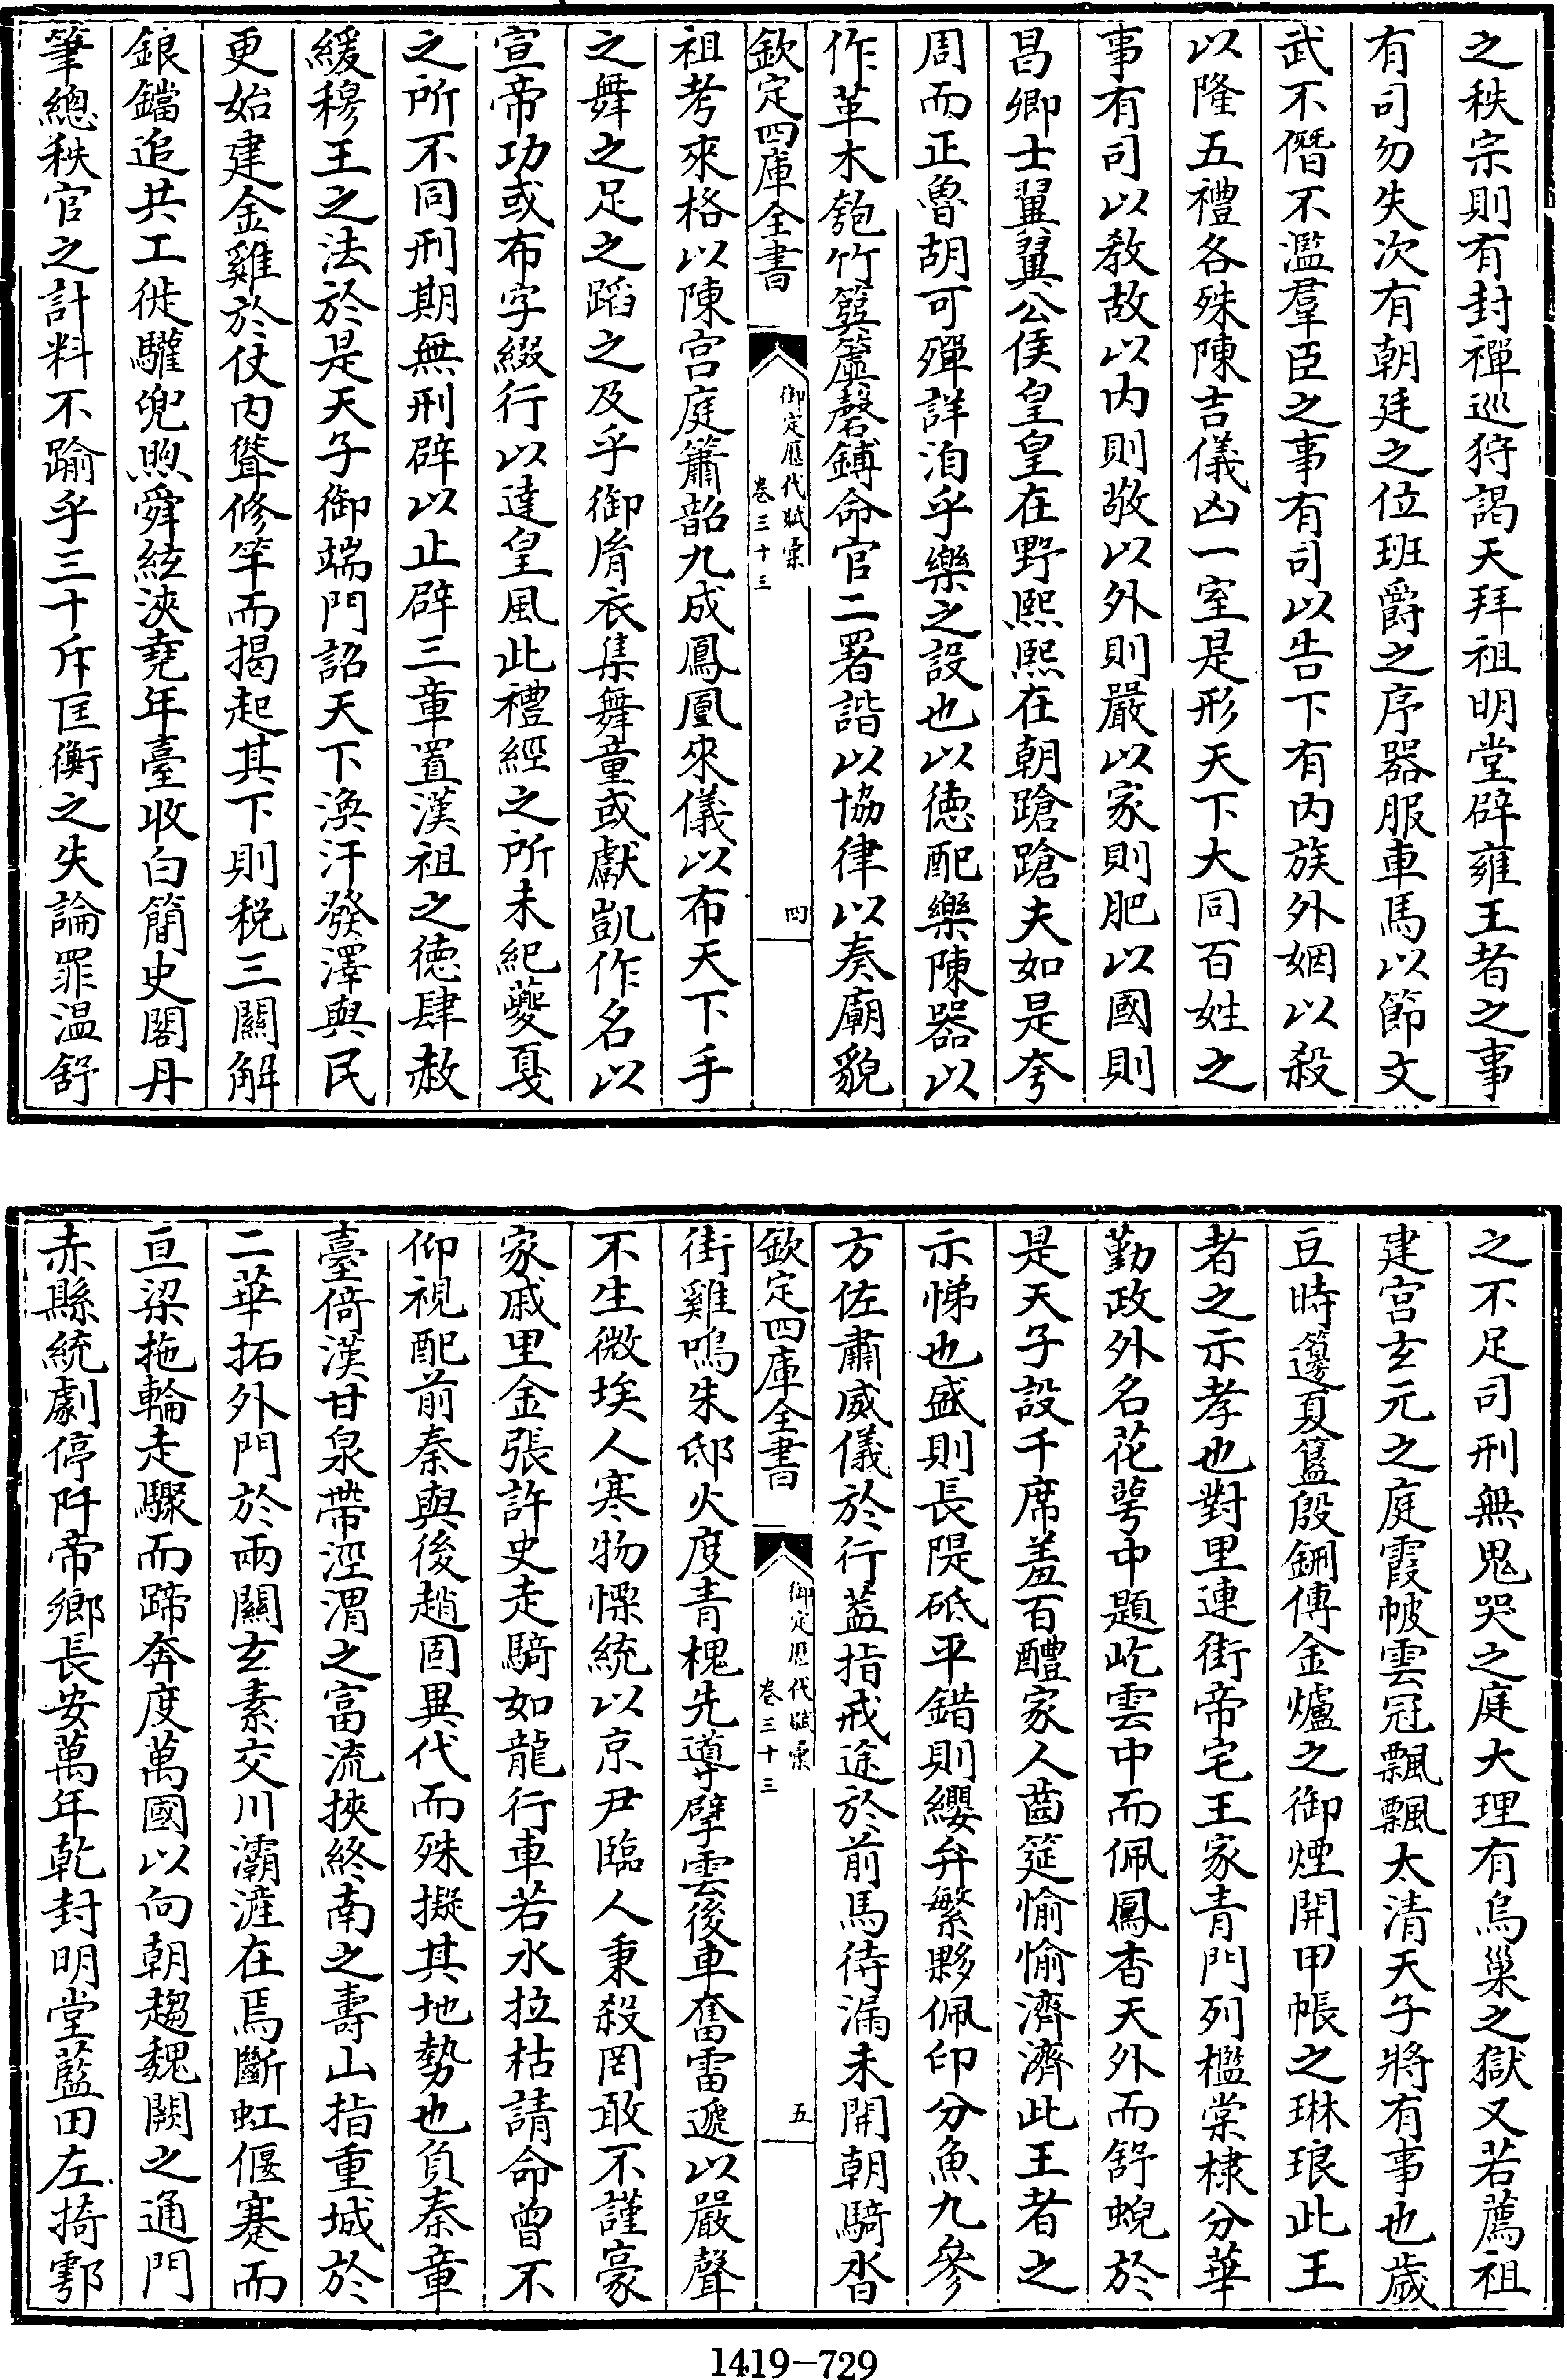 之秩宗則有封禪巡狩謁天拜祖明堂辟雍王者之事
有司勿失次有朝廷之位班爵之序器服車馬以節文
武不僭不濫羣臣之事有司以告下有内族外姻以殺
以隆五禮各殊陳吉儀凶一室是形天下大同百姓之
事有司以教故以内則敬以外則嚴以家則肥以國則
昌卿士翼翼公侯皇皇在野熙熙在朝蹌蹌夫如是夸
周而正魯胡可殫詳洎乎樂之設也以徳配樂陳器以
作革木匏竹簨簴磬鎛命官二署諧以協律以奏廟貌
欽定四庫全書
御定歷代賦彙
卷三十三
四
祖考來格以陳宫庭簫韶九成鳳凰來儀以布天下手
之舞之足之蹈之及乎御脀衣集舞童或獻凱作名以
宣帝功或布字綴行以達皇風此禮經之所未紀夔戛
之所不同刑期無刑辟以止辟三章置漢祖之徳肆赦
緩穆王之法於是天子御端門詔天下渙汗發澤與民
更始建金雞於仗内聳修竿而揭起其下則税三關解
鋃鐺追共工徙驩兜煦舜絃浹堯年臺收白簡史閣丹
筆總秩官之計料不踰乎三十斥匡衡之失論罪温舒
之不足司刑無鬼哭之庭大理有烏巢之獄又若薦祖
建宫玄元之庭霞帔雲冠飄飄太清天子將有事也歲
亘時籩夏簋殷鉶傅金爐之御煙開甲帳之琳琅此王
者之示孝也對里連街帝宅王家青門列檻棠棣分華
勤政外名花萼中題屹雲中而佩鳳杳天外而舒蜺於
是天子設千席羞百醴家人齒筵愉愉濟濟此王者之
示悌也盛則長隄砥平錯則纓弁繁夥佩印分魚九參
方佐肅威儀於行蓋指戒途於前馬待漏未開朝騎沓
欽定四庫全書
御定歷代賦彙
卷三十三
五
街雞鳴朱邸火度青槐先導擘雲後車奮雷遞以嚴聲
不生微埃人寒物慄統以京尹臨人秉殺罔敢不謹豪
家戚里金張許史走騎如龍行車若水拉枯請命曾不
仰視配前秦與後趙固異代而殊擬其地勢也負秦章
臺倚漢甘泉帶涇渭之富流挾終南之壽山指重城於
二華拓外門於兩關玄素交川灞滻在焉斷虹偃蹇而
亘梁拖輪走驟而蹄奔度萬國以向朝趨魏闕之通門
赤縣統劇停阡帝鄉長安萬年乾封明堂藍田左掎鄠
1419-729